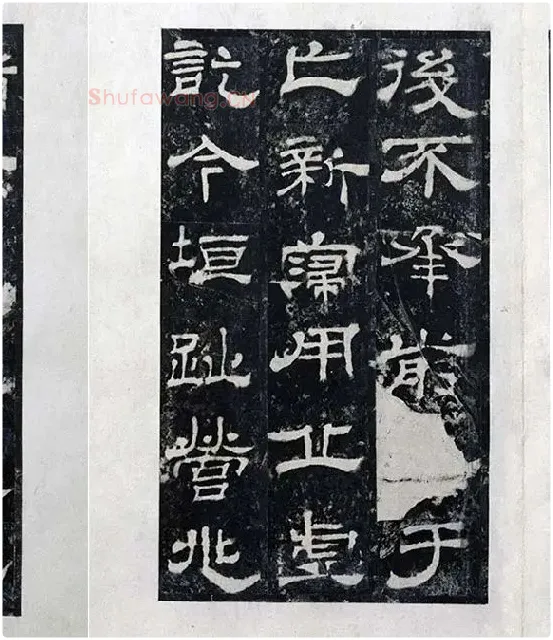 後不承前于
亡新寖用丘虛
訖今垣趾營兆
Shufawang.CN